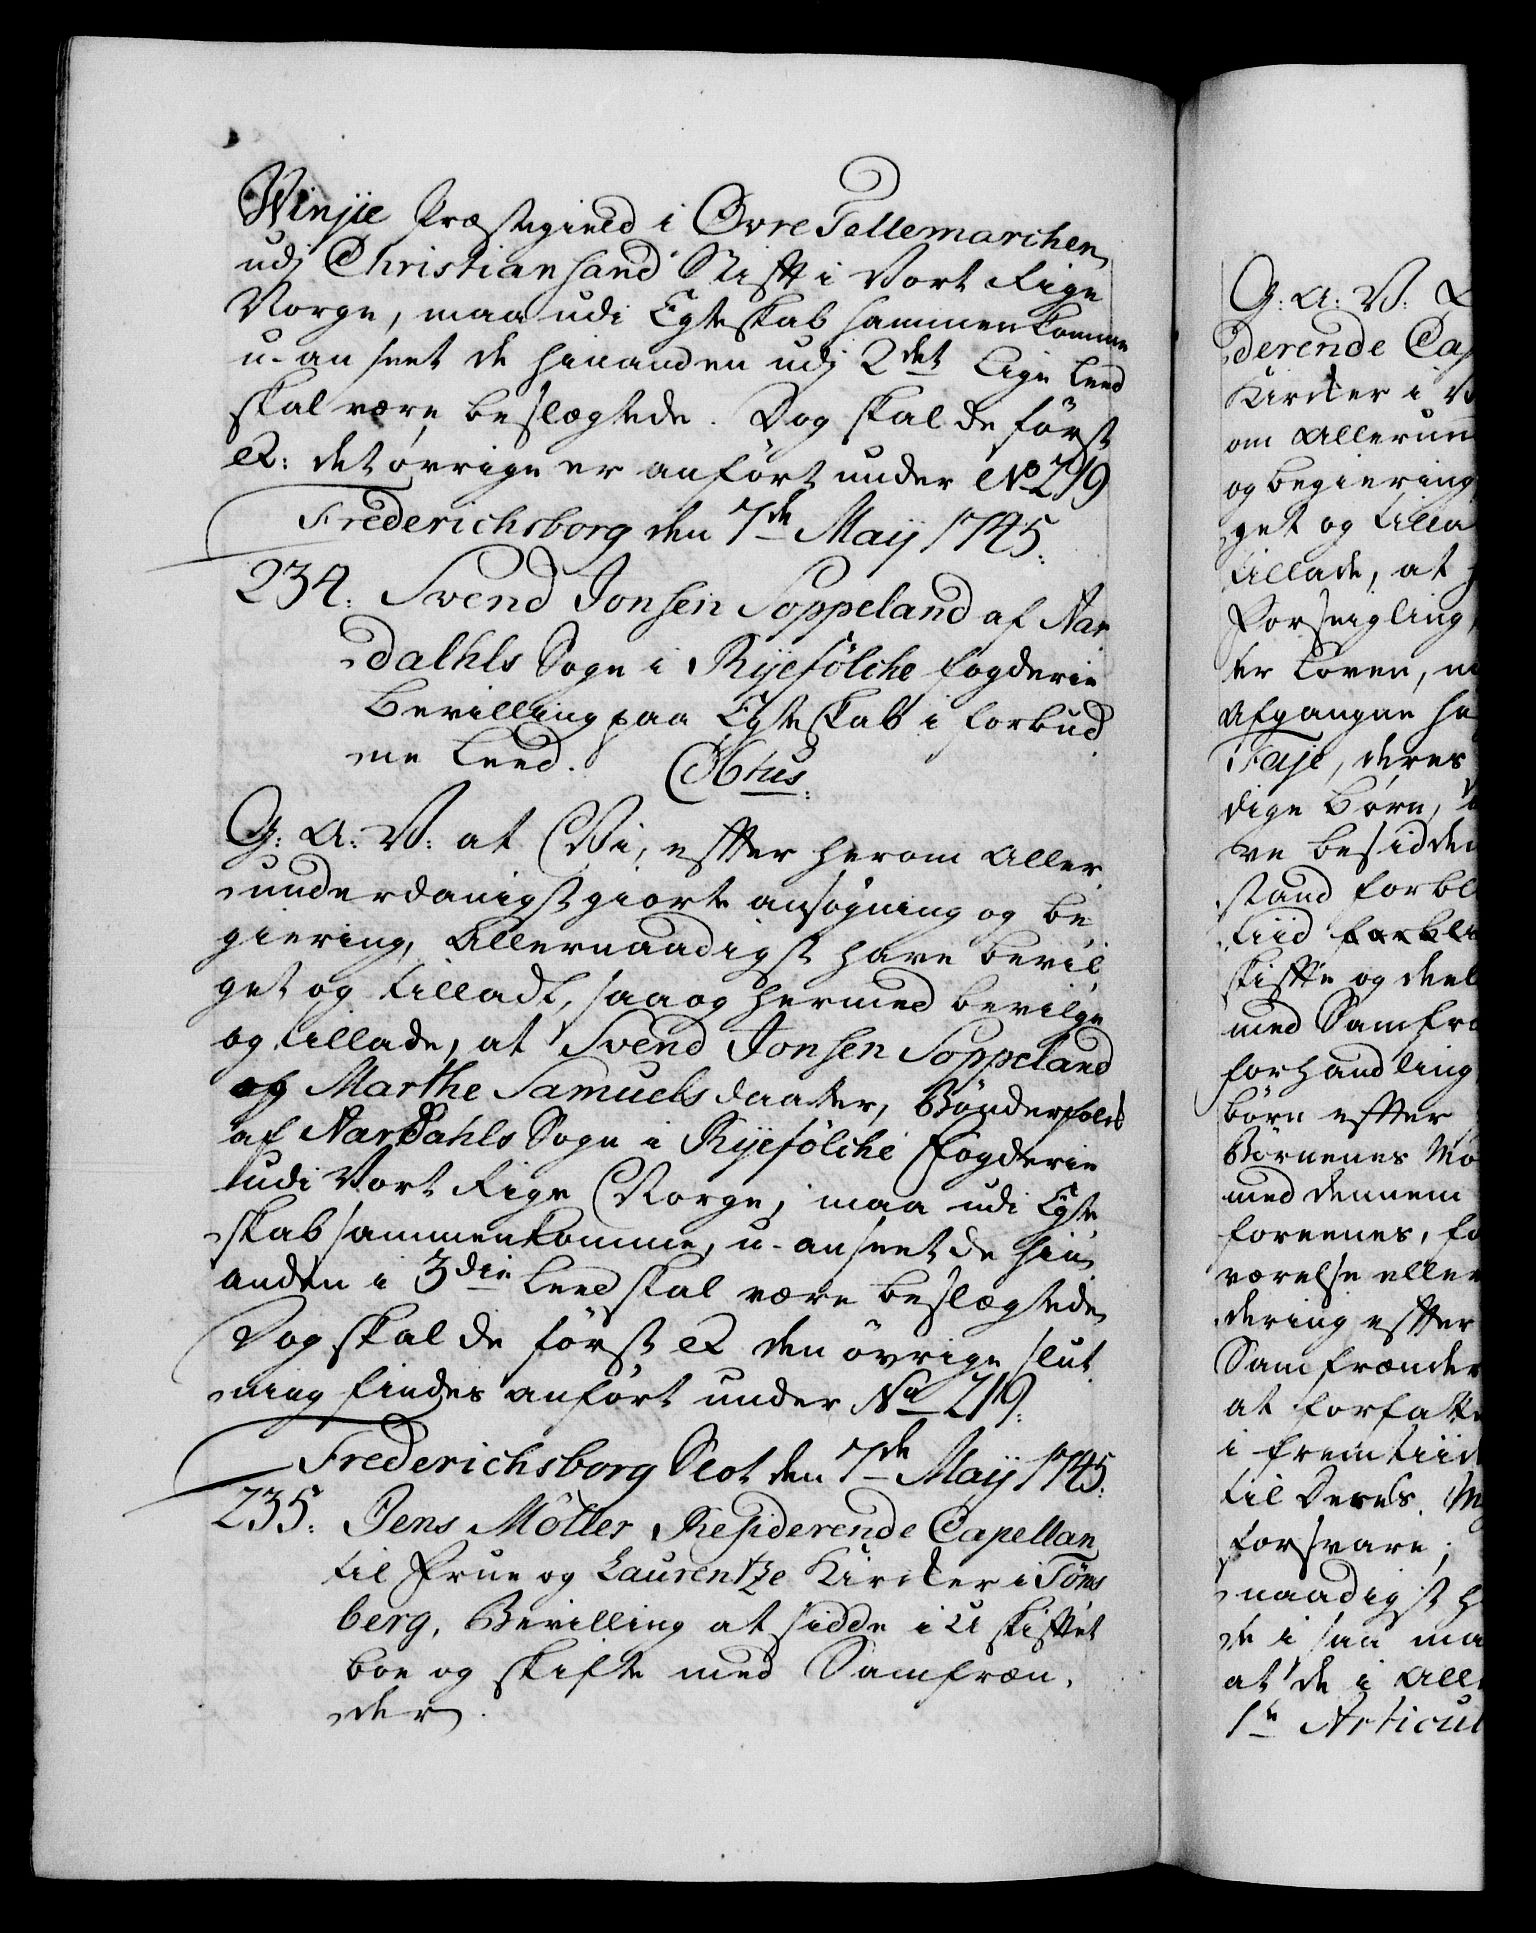 Winjie Præstegield i Øvre Tellemarchen
udj Christiansand Stifft i Vort Rige
Norge, maa udi Egteskab sammenkomme
u-anseet de hinanden udj 2det Lige Leed
skal være beslægtede. Dog skal de först
&: det övrige er anfört under No 219
Frederichsborg den 7de Maij 1745.
234. Svend Jonsen Soppeland af Nar
dalhls Sogn i Ryefölche fogderie
Bevilling paa Egteskab i forbud
ne Leed. Gratis.
G: A: V: at Vi, effter herom aller
underdanigst giorte ansögning og be
giering, Allernaadigst have bevil
get og tilladt, saa og hermed bevilge
og tillade, at Svend Jonsen Soppeland
og Marthe Samuelsdaater, Bönderfolck
af Nardahls Sogn i Ryefölche Fogderie
udi Vort Rige Norge, maa udi Egte
skab sammenkomme, u-anseet de hin
anden i 3die Leed skal være beslægtede,
Dog skal de först & den övrige slut
ning findes anfört under No 219.
Frederichsborg Slot den 7de Maij 1745.
235. Jens Möller Residerende Capellan
til Frue og Laurentze Kircker i Töns
berg, Bevilling at sidde i U skiftet
boe og skifte med Samfræn
der.
G: A: V:
derende Cap
Kircker i
om Allerun
og begiering
get og tilla
tillade, at
Forseigling,
ter Loven,
Afgangne
Faye, deres
dige Börn,
re besidde
stand forbl
tiid forbli
skiffte og deel
med Samfræ
forhandling
börn effter
Börnenes Mö
med dennem
foreenes, fo
værelse eller
dering effter
Samfrænder
at forfatte
i fremtiid
til Deres
forsvare;
naadigst h
de i saa ma
at de i Alle
1te Articul